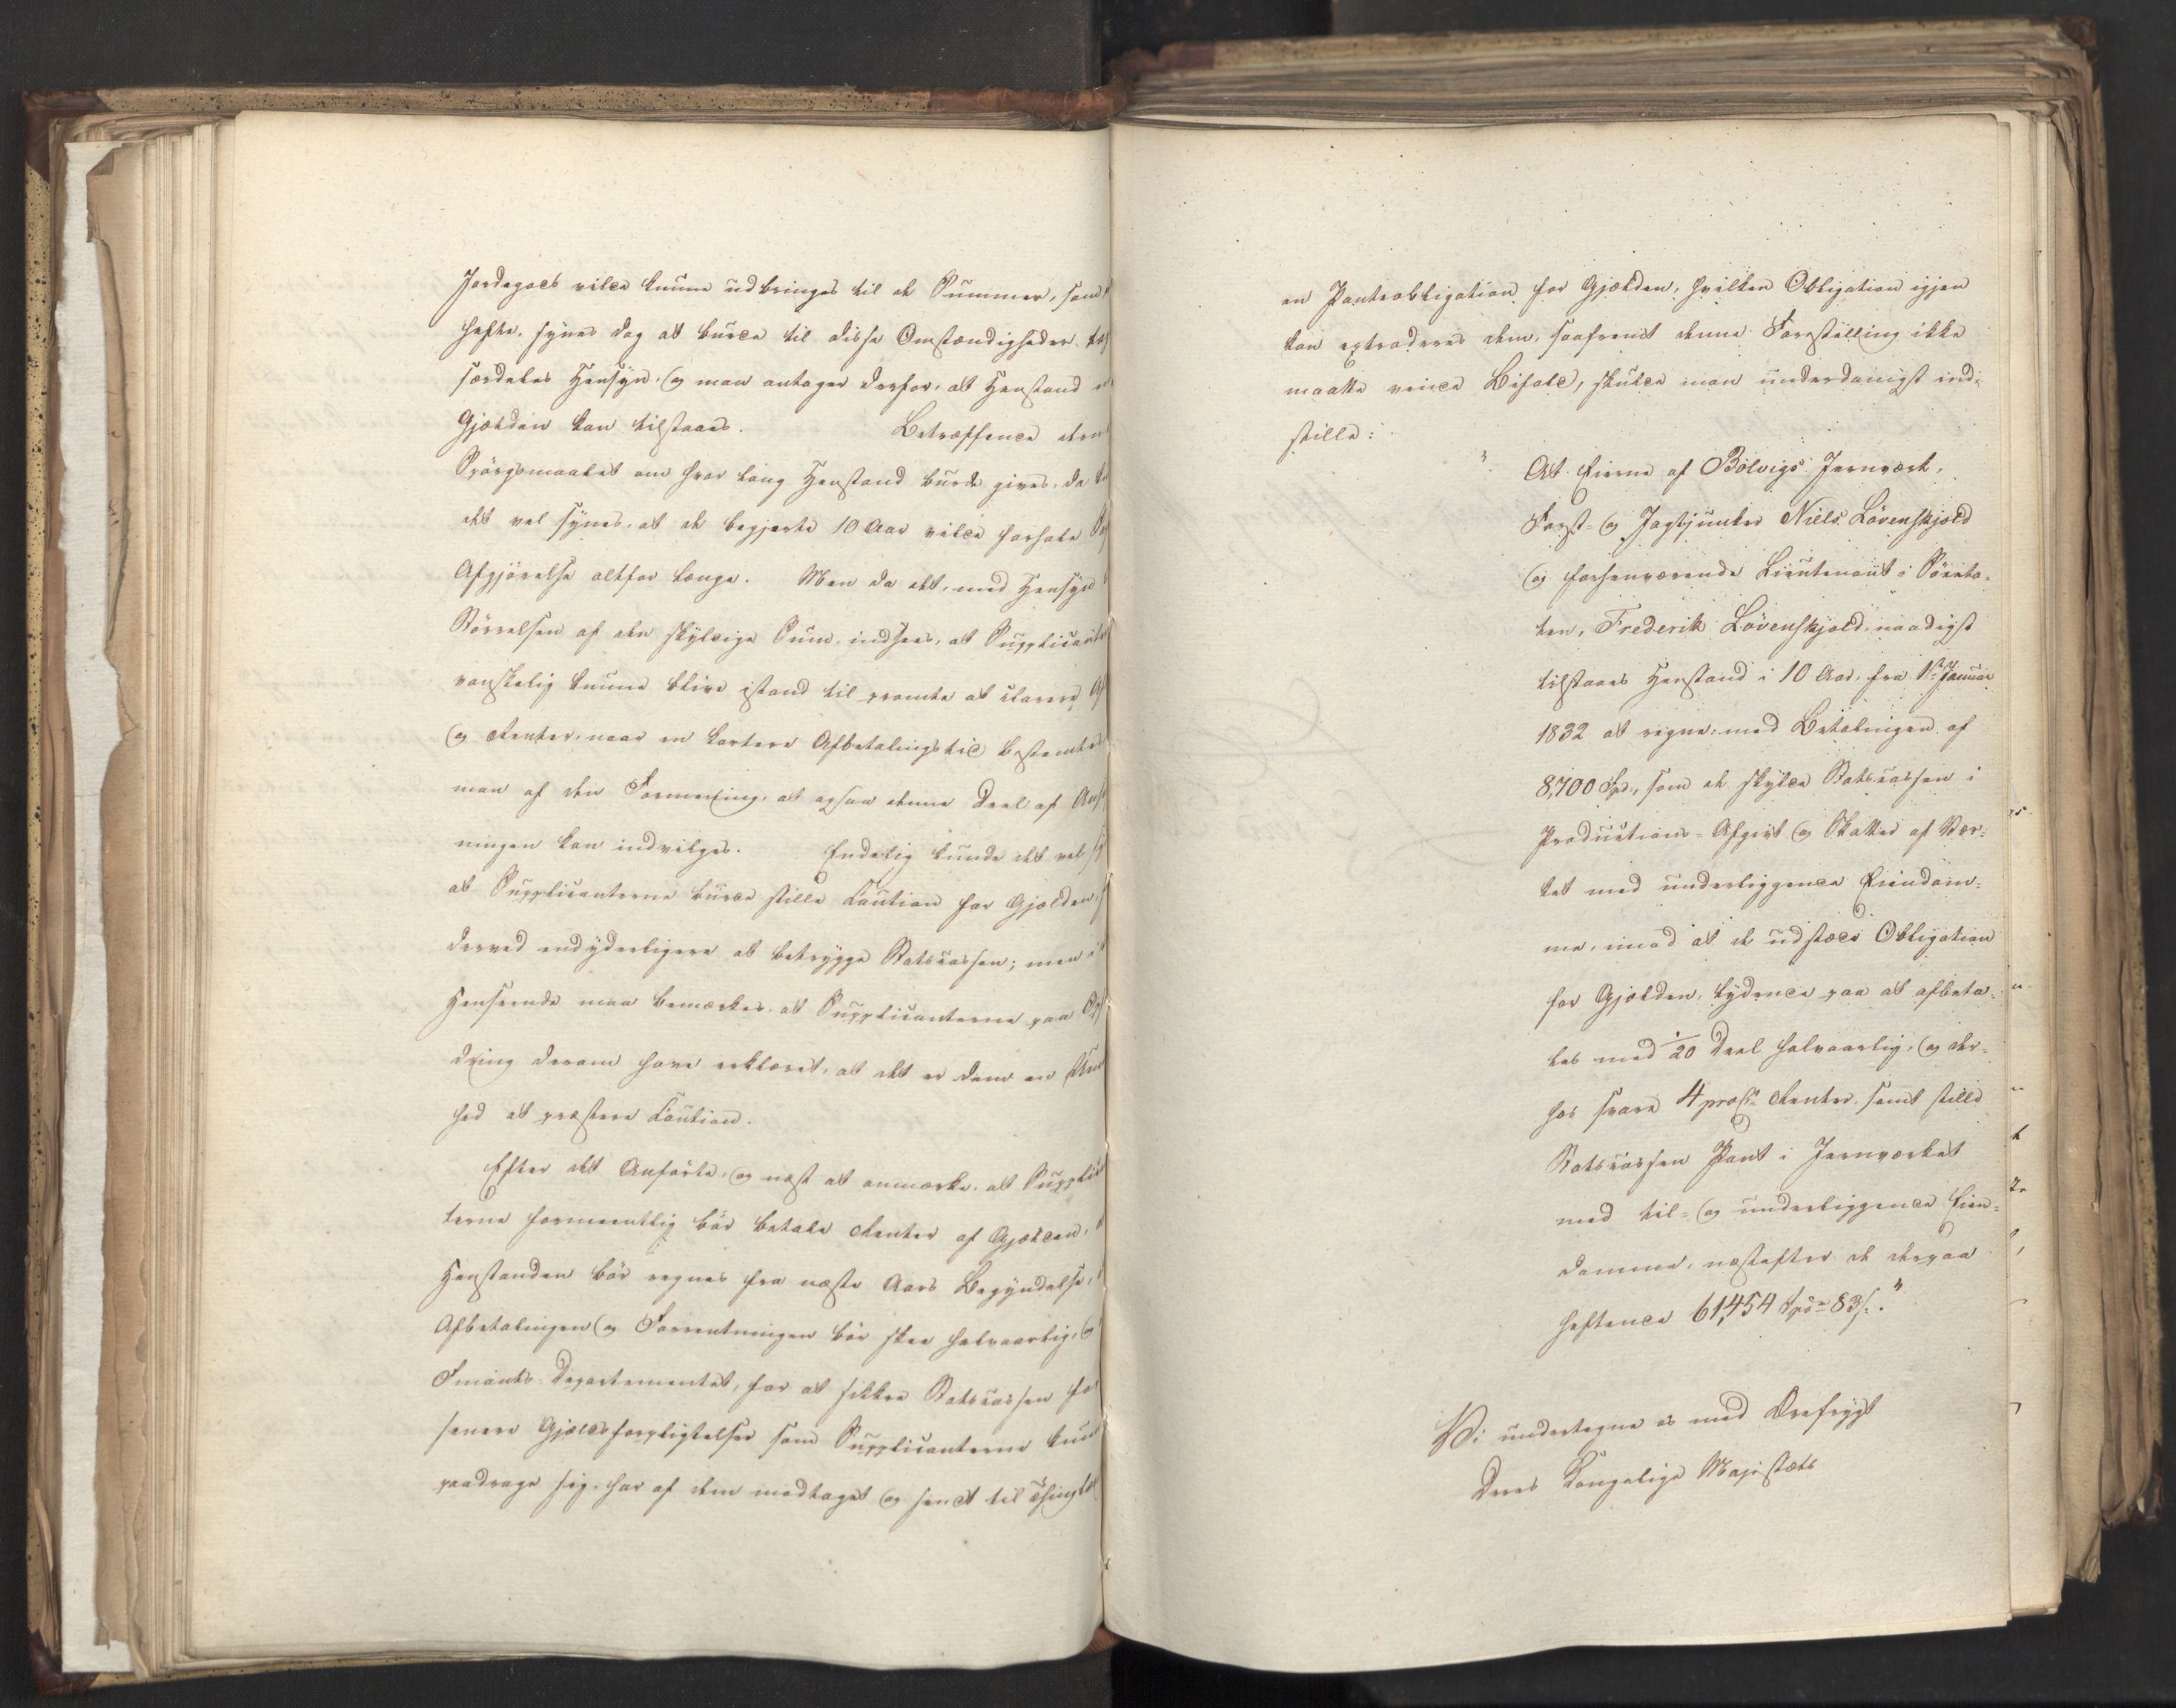 Jordegods vilde kunne udbringes til de Summer, som
hefte, synes dog at burde til disse Omstændigheder
særdeles Hensyn, og man antager derfor, at Henstand
Gjælden kan tilstaaes. Betræffende den
Spörgsmaalet om hvor lang Henstand burde gives, da
det vel synes, at de begjerte 10 Aar vilde forhale
Afgjörelse altfor længe. Men da det, med Hensyn
Störrelsen af den skyldige Sum, indsees, at Supplicant
vanskelig kunne blive istand til promte at clarere
og Renter, naar en kortere Afbetalingstid bestemtes
man af den Formening, at ogsaa denne Deel af Ans
ningen kan indvilges. Endelig kunde det vel
at Supplicanterne burde stille Caution for Gjælden,
derved endyderligere at betrygge Statscassen; men i
Henseende maa bemærkes, at Supplicanterne paa Op
dring derom have erklæret, at det er dem en Um
hed at præstere Caution.
Efter det Anförte, og næst at anmærke, at Supplic
terne formeentlig bör betale Renter af Gjælden,
Henstanden bör regnes fra næste Aars Begyndelse,
Afbetalingen og Forrentningen bör skee halvaarlig, og
Finants-Departementet, for at sikkre Statscassen for
senere Gjældsforpligtelser som Supplicanterne kun
paadrage sig, har af dem modtaget og sendt til Thinglæs
en Panteobligation for Gjælden, hvilken Obligation igjen
kan extraderes dem, saafremt denne Forestilling ikke
maatte vinde Bifald, skulde man underdanigst ind-
stille:
" At Eierne af Bölvigs Jernværk,
Forst- og Jagtjunker Niels Lövenskjold
og forhenværende Lieutenant i Söeeta-
ten, Frederik Lövenskjold, naadigst
tilstaaes Henstand i 10 Aar, fra 1ste Januar
1832 at regne, med Betalingen af
8,700 Spd., som de skylde Statscassen i
Productions-Afgivt og Skatter af Vær-
ket med underliggende Eiendom-
me, imod at de udstæde Obligation
for Gjælden, lydende paa at afbeta-
les med 1/20 Deel halvaarlig, og der-
hos svare 4 pro Ct. Renter, samt stille
Statscassen Pant i Jernværket
med til- og underliggende Eien-
domme, næstefter de derpaa
heftende 61,454 Spd. 83 s."
Vi undertegne os med Ærefrygt
Deres Kongelige Majestæts